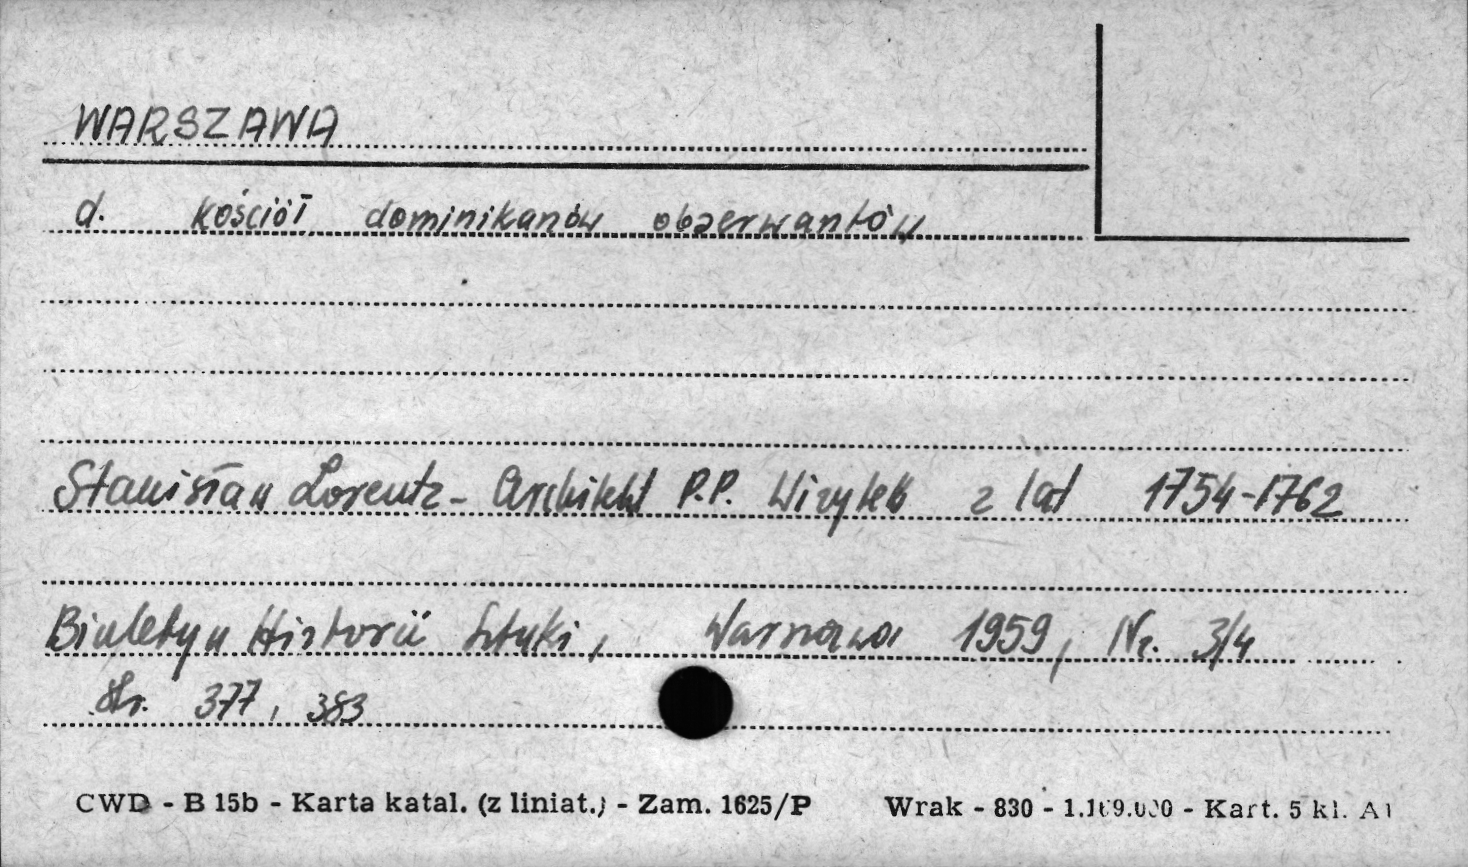 WARSZAWA
d. kościół dominikanów obserwantów
Stanisław Lorentz - Architekt P.P. Wizytek z lat 1754-1762
Biuletyn Historii Sztuki, Warszawa 1959, Nr. 3/4
Str. 377, 383
CWD - B 15b - Karta katal. (z liniat.) - Zam. 1625/P Wrak - 830 - 1.169.000 - Kart. 5 kl. A1